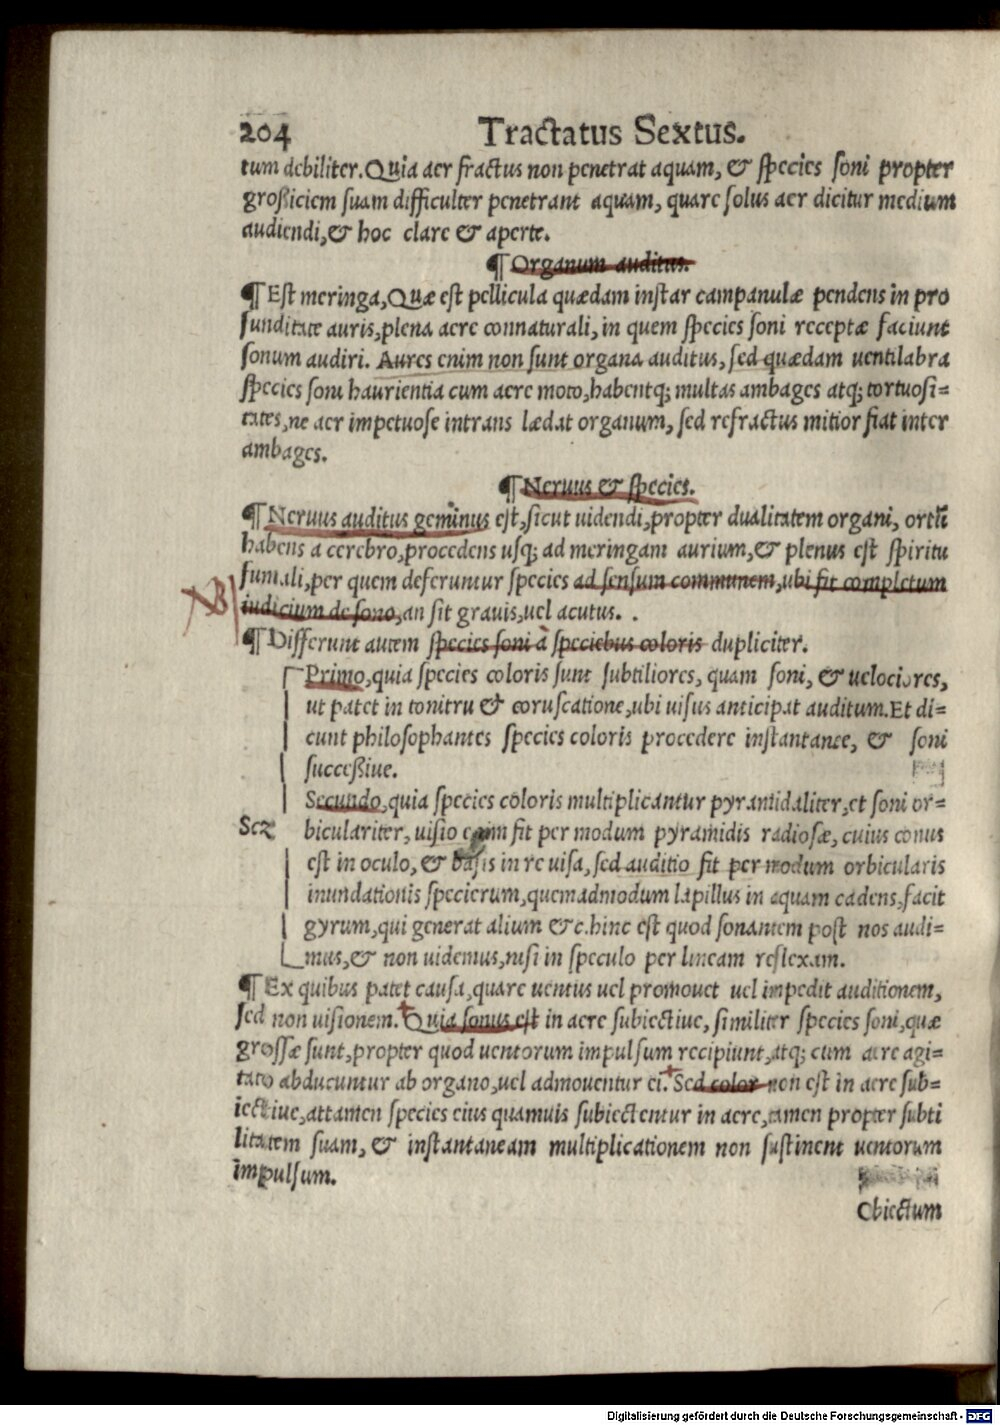 204 Tractatus Sextus.
tum debiliter. Quia aer fractus non penetrat aquam, & species soni propter
großiciem suam difficulter penetrant aquam, quare solus aer dicitur medium
audiendi, & hoc clare & aperte.
¶ Organum auditus.
¶ Est meringa, Quæ est pellicula quædam instar campanulæ pendens in pro
funditate auris, plena aere connaturali, in quem species soni receptæ faciunt
sonum audiri. Aures enim non sunt organa auditus, sed quædam uentilabra
species soni haurientia cum aere moto, habentq; multas ambages atq; tortuosi=
tates, ne aer impetuose intrans lædat organum, sed refractus mitior fiat inter
ambages.
¶ Neruus & species.
¶ Neruus auditus geminus est, sicut uidendi, propter dualitatem organi, ortū
habens a cerebro, procedens usq; ad meringam aurium, & plenus est spiritu
fumali, per quem deferuntur species ad sensum communem, ubi fit completum
NB iudicium de sono, an sit grauis, uel acutus. .
¶ Differunt autem species soni à speciebus coloris dupliciter.
Primo, quia species coloris sunt subtiliores, quam soni, & uelociores,
ut patet in tonitru & coruscatione, ubi uisus anticipat auditum. Et di=
cunt philosophantes species coloris procedere instantanee, & soni
succeßiue.
Secundo, quia species coloris multiplicantur pyramidaliter, et soni or=
Scz biculariter, uisio enim fit per modum pyramidis radiosæ, cuius conus
est in oculo, & basis in re uisa, sed auditio fit per modum orbicularis
inundationis specierum, quemadmodum lapillus in aquam cadens, facit
gyrum, qui generat alium &c. hinc est quod sonantem post nos audi=
mus, & non uidemus, nisi in speculo per lineam reflexam.
¶ Ex quibus patet causa, quare uentus uel promouet uel impedit auditionem,
sed non uisionem. Quia sonus est in aere subiectiue, similiter species soni, quæ
grossæ sunt, propter quod uentorum impulsum recipiunt, atq; cum aere agi=
tato abducuntur ab organo, uel admouentur ei. Sed color non est in aere sub=
iectiue, attamen species eius quamuis subiectentur in aere, tamen propter subti
litatem suam, & instantaneam multiplicationem non sustinent uentorum
impulsum.
Obiectum
Digitalisierung gefördert durch die Deutsche Forschungsgemeinschaft - DFG